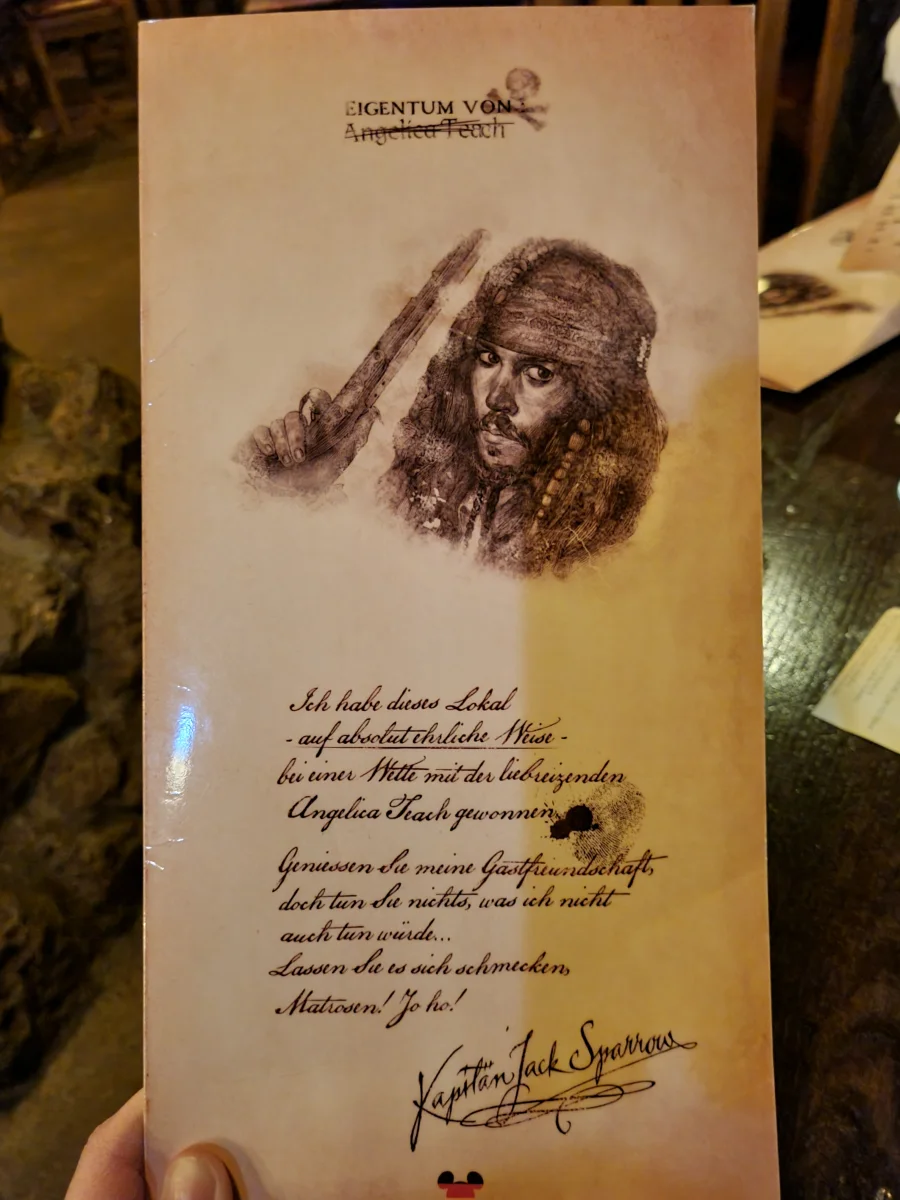 EIGENTUM VON
Angelica Teach
Ich habe dieses Lokal
- auf absolut ehrliche Weise -
bei einer Wette mit der liebreizenden
Angelica Teach gewonnen.
Geniessen Sie meine Gastfreundschaft,
doch tun Sie nichts, was ich nicht
auch tun würde...
Lassen Sie es sich schmecken,
Matrosen! Jo ho!
Kapitän Jack Sparrow